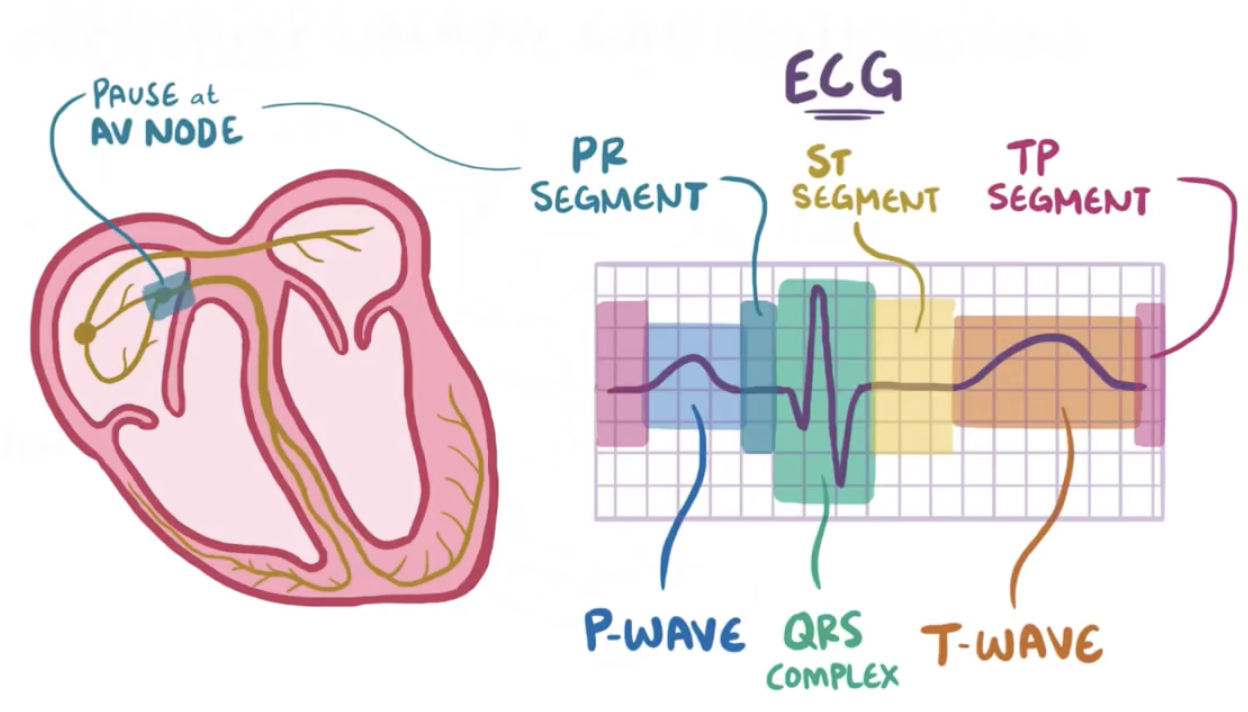 ECG
PAUSE at
AV NODE
PR
SEGMENT
ST
SEGMENT
TP
SEGMENT
P-WAVE
QRS
COMPLEX
T-WAVE